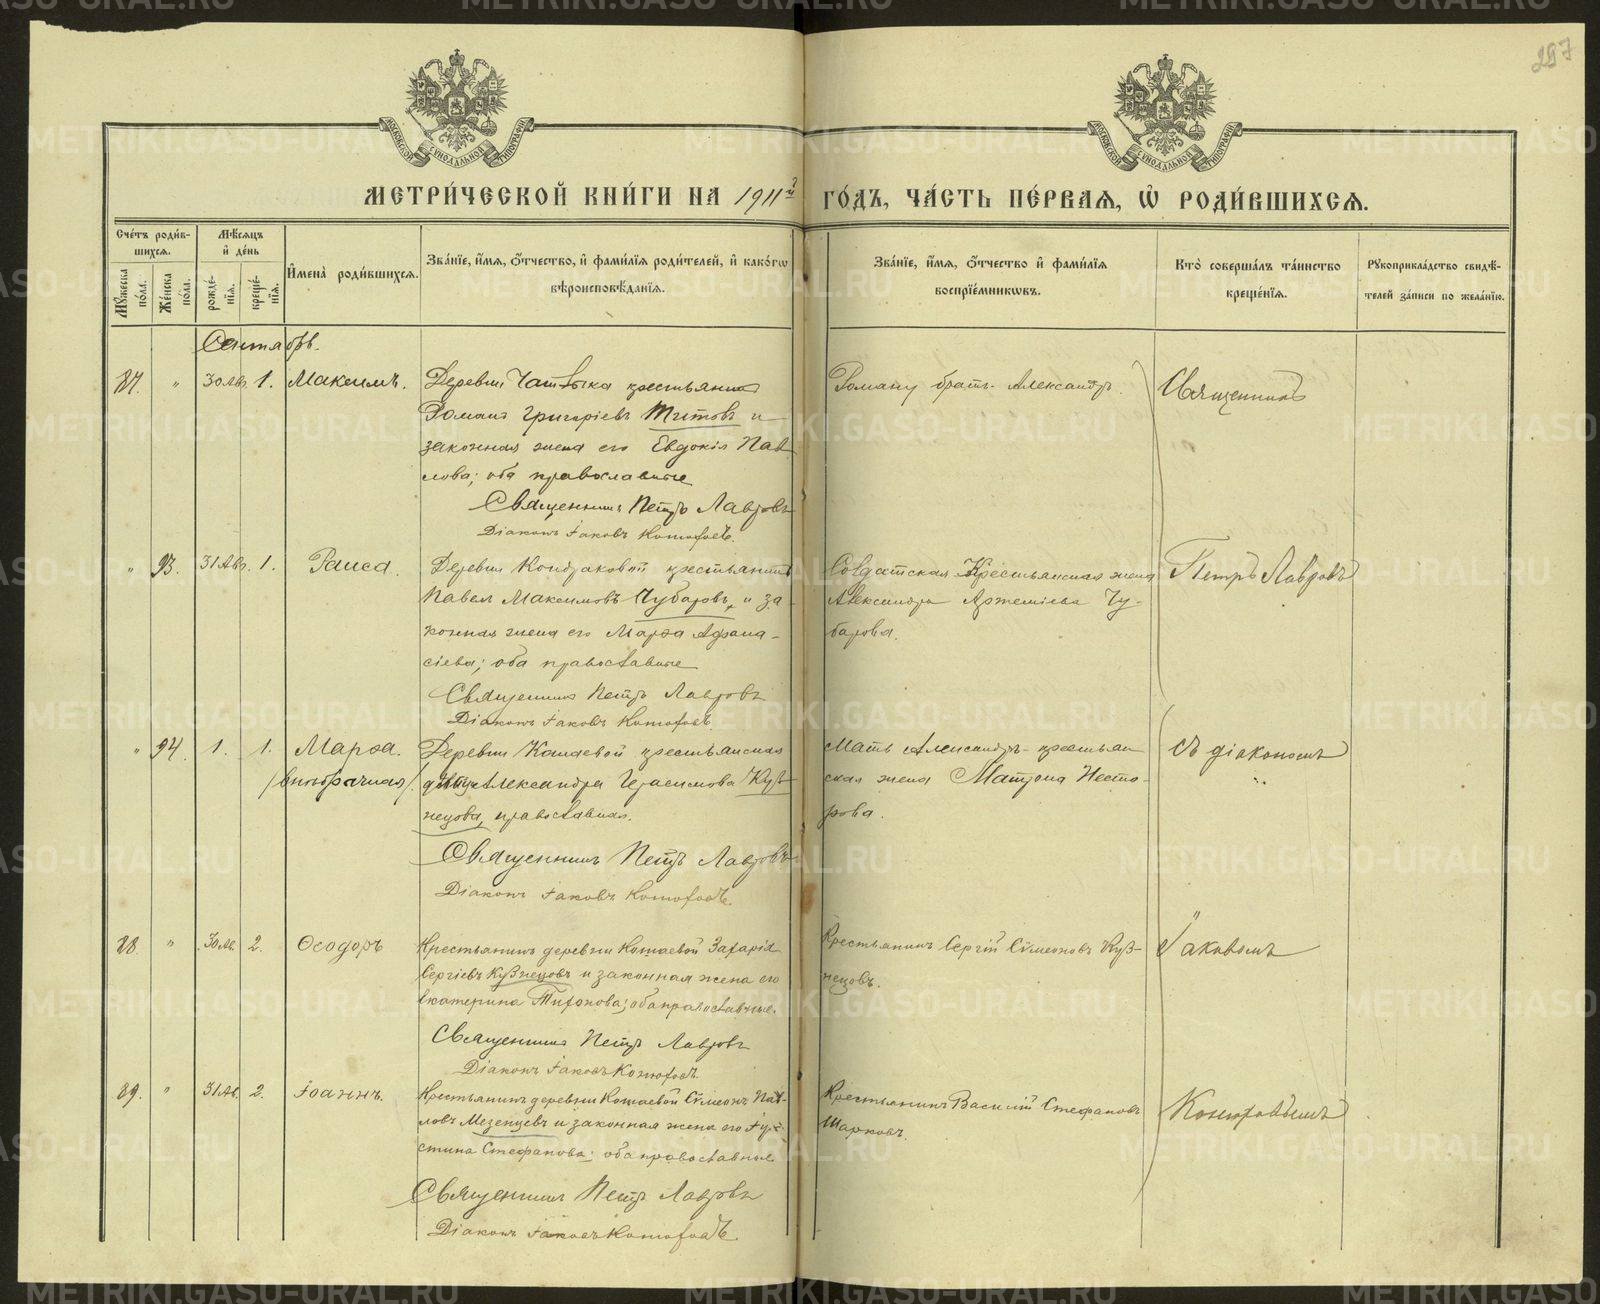 287
МОСКОВСКОЙ СѴНОДАЛЬНОЙ ТИПОГРАФІИ
МОСКОВСКОЙ СѴНОДАЛЬНОЙ ТИПОГРАФІИ
МЕТРИ́ЧЕСКОЙ КНИ́ГИ НА 1911й ГО́ДЪ, ЧА́СТЬ ПЕ́РВАЯ, Ѡ РОДИ́ВШИХСЯ.
Сче́тъ роди́в-
шихся.
Му́жеска по́ла.
Же́нска по́ла.
Мѣ́сяцъ
и҆ де́нь
рожде́-
нїя.
креще́-
нїя.
И҆мена̀ роди́вшихся.
Зва́нїе, и҆́мя, ѻ҆́тчество, и҆ фами́лїя роди́телей, и҆ како́гѡ
вѣроисповѣ́данїя.
Зва́нїе, и҆́мя, ѻ҆́тчество и҆ фами́лїя
воспрїе́мникѡвъ.
Кто̀ соверша́лъ та́инство
креще́нїя.
Рꙋкоприкла́дство свидѣ́-
телей за́писи по жела́нїю.
Сентябрь.
87. " 30 Авг. 1. Максимъ.
Деревни крестьянинъ
Романъ Григоріевъ Титовъ и
законная жена его Евдокія Пав
лова; оба православные
Священникъ Петръ Лавровъ
Діаконъ Іаковъ Конюховъ.
Роману братъ Александръ.
Священникъ
" 93. 31 Авг. 1. Раиса.
Деревни Кондраковой крестьянинъ
Павелъ Максимовъ Чубаровъ, и за-
конная жена его Марѳа Афана-
сіева; оба православные
Священникъ Петръ Лавровъ
Діаконъ Іаковъ Конюховъ.
Солдатская Крестьянская жена
Александра Артеміева Чу-
барова.
Петръ Лавровъ
" 94. 1. 1. Марѳа.
/внѣбрачная/.
Деревни крестьянская
дѣвица Александра Герасимова Куз
нецова, православная.
Священникъ Петръ Лавровъ
Діаконъ Іаковъ Конюховъ.
Мать Александръ крестьян
ская жена Матрона Несто-
рова.
съ діакономъ
88. " 30 Ав. 2. Ѳеодоръ
Крестьянинъ деревни Кошаевой Захарія
Сергіевъ Кузнецовъ и законная жена его
Екатерина Тихонова; оба православные.
Священникъ Петръ Лавровъ
Діаконъ Іаковъ Конюховъ.
Крестьянинъ Сергій Сѵмеоновъ Куз-
нецовъ.
Іаковомъ
89. " 31 Ав. 2. Іоаннъ.
Крестьянинъ деревни Кошаевой Сѵмеонъ Пав-
ловъ Мезенцевъ и законная жена его Іу-
стина Стефанова; оба православные
Священникъ Петръ Лавровъ
Діаконъ Іаковъ Конюховъ.
Крестьянинъ Василій Стефановъ
Шарковъ.
Конюховымъ
METRIKI.GASO-URAL.RU